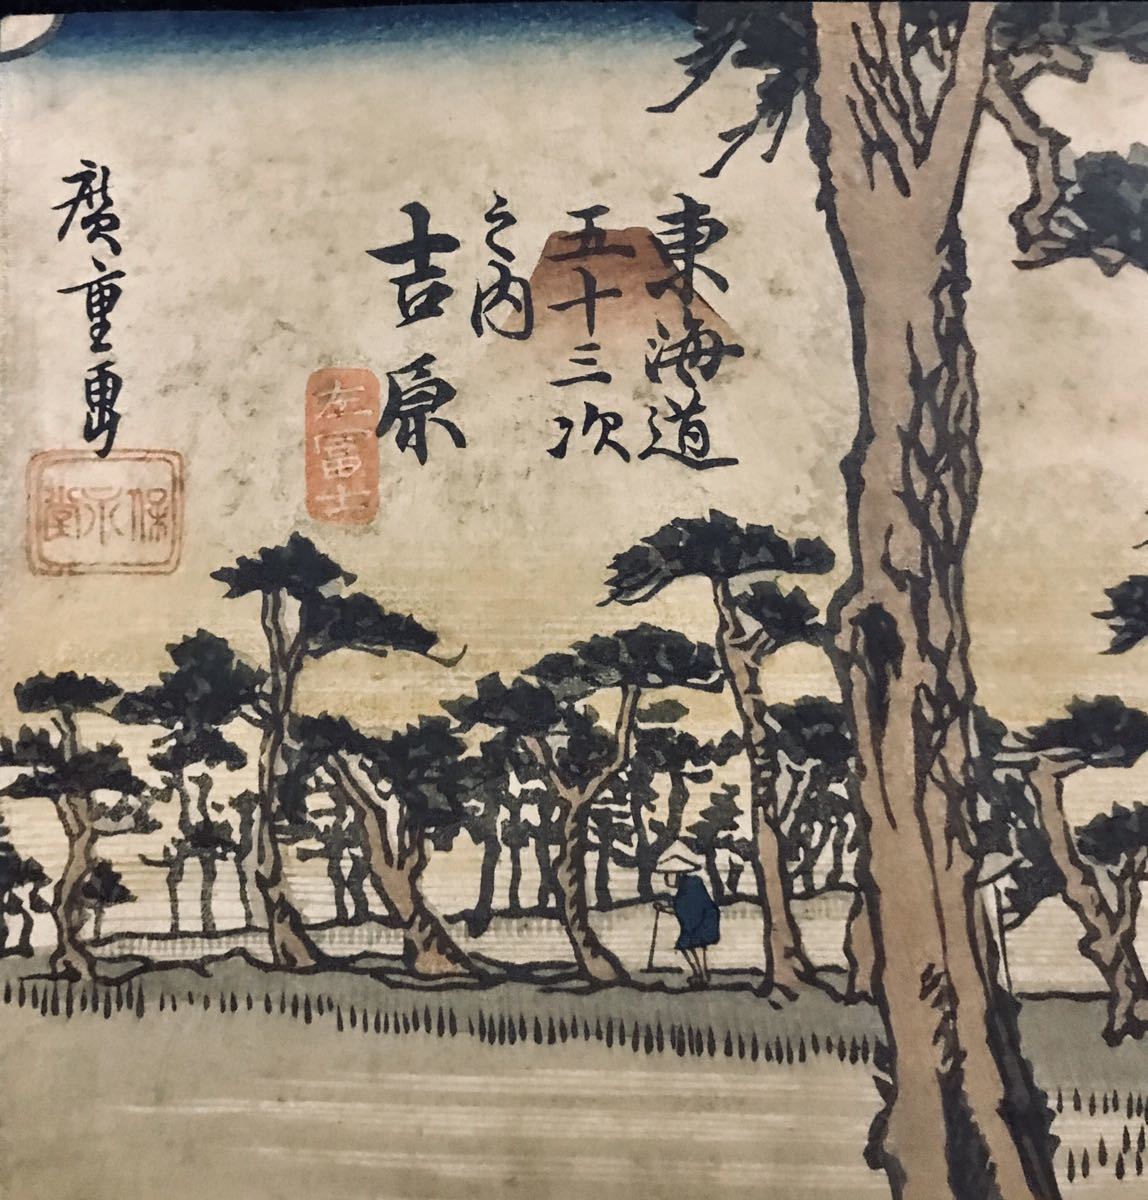 東海道
五十三次
之内
吉原
左冨士
廣重画
保永堂